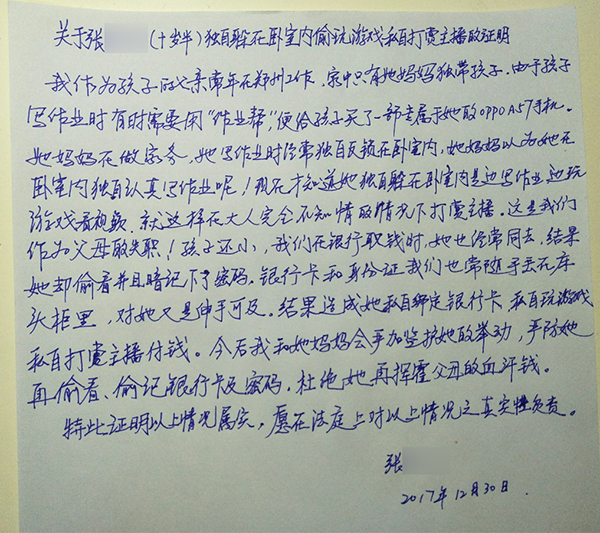 关于张 (十岁半)独自躲在卧室内偷玩游戏私自打赏主播的证明
我作为孩子的父亲常年在郑州工作,家中只有她妈妈独带孩子,由于孩子
写作业时有时需要用“作业帮”,便给孩子买了一部专属于她的OPPO A57手机。
她妈妈在做家务,她写作业时经常独自反锁在卧室内,她妈妈以为她在
卧室内独自认真写作业呢!现在才知道她独自躲在卧室内是边写作业边玩
游戏看视频,就这样在大人完全不知情的情况下打赏主播。这是我们
作为父母的失职!孩子还小,我们在银行取钱时,她也经常同去,结果
她却偷看并且暗记下了密码。银行卡和身份证我们也常随手丢在床
头柜里,对她又是伸手可及。结果造成她私自绑定银行卡 私自玩游戏
私自打赏主播付钱。今后我和她妈妈会严加监护她的举动,严防她
再偷看、偷记银行卡及密码,杜绝她再挥霍父母的血汗钱。
特此证明以上情况属实,愿在法庭上对以上情况之真实性负责。
张
2017年12月30日.